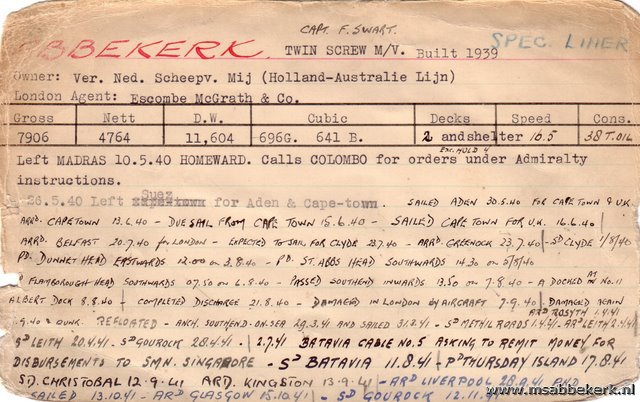 CAPT. F. SWART.
ABBEKERK. TWIN SCREW M/V. Built 1939 SPEC. LINER
Owner: Ver. Ned. Scheepv. Mij (Holland-Australie Lijn)
London Agent: Escombe McGrath & Co.
Gross Nett D.W. Cubic Decks Speed Cons.
7906 4764 11,604 696G. 641 B. 2 and shelter 16.5 38 T. OIL
Exc. HOLD 4
Left MADRAS 10.5.40 HOMEWARD. Calls COLOMBO for orders under Admiralty
instructions.
26.5.40 Left Suez for Aden & Cape-town. SAILED ADEN 30.5.40 FOR CAPETOWN & U.K.
ARRD. CAPETOWN 13.6.40 - DUE SAIL FROM CAPE TOWN 15.6.40 - SAILED CAPE TOWN FOR U.K. 16.6.40
ARRD. BELFAST 20.7.40 for LONDON - EXPECTED TO SAIL FOR CLYDE 23.7.40 - ARRD. GREENOCK 23.7.40 - SD CLYDE 1/8/40
PD. DUNNET HEAD EASTWARDS 12.00 on 3.8.40 - PD. ST. ABBS HEAD SOUTHWARDS 14.30 on 5/8/40
PD FLAMBOROUGH HEAD SOUTHWARDS 07.50 on 6.8.40 - PASSED SOUTHEND INWARDS 13.50 on 7.8.40 - & DOCKED AT No. 11
ALBERT DOCK 8.8.40 | COMPLETED DISCHARGE 21.8.40 - DAMAGED IN LONDON BY AIRCRAFT 7.9.40 | DAMAGED AGAIN
ARD ROSYTH 1.4.41
.9.40 & SUNK. REFLOATED - ANCH. SOUTHEND-ON-SEA 29.3.41 AND SAILED 31.3.41 - SD METHIL ROADS 1.4.41 - ARD LEITH 2.4.41
SD LEITH 20.4.41 - SD GOUROCK 28.4.41 | 2.7.41 BATAVIA CABLE NO.5 ASKING TO REMIT MONEY FOR
DISBURSEMENTS TO SMN. SINGAPORE - SD BATAVIA 11.8.41 - PD THURSDAY ISLAND 17.8.41
SD. CHRISTOBAL 12.9.41 ARD. KINGSTON 13.9.41 - ARD LIVERPOOL 28.9.41 AND
SAILED 13.10.41 - ARD GLASGOW 15.10.41 - SD GOUROCK 12.11.41
www.msabbekerk.nl